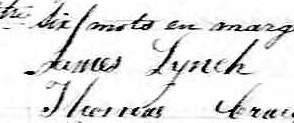 six mots en marg
James Lynch
Thomas Craig